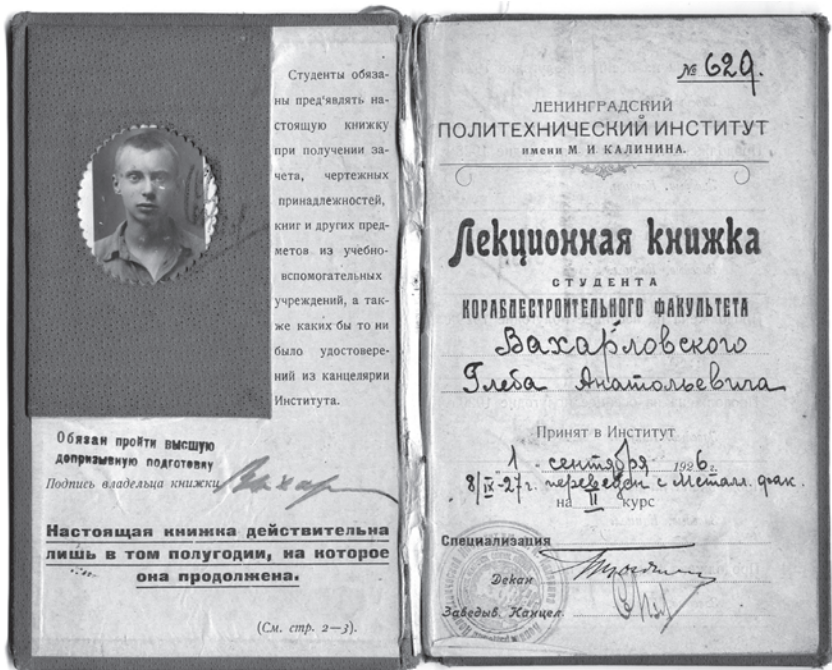 Студенты обяза-
ны пред'являть на-
стоящую книжку
при получении за-
чета, чертежных
принадлежностей,
книг и других пред-
метов из учебно-
вспомогательных
учреждений, а так-
же каких бы то ни
было удостовере-
ний из канцелярии
Института.
Обязан пройти высшую
допризывную подготовку
Подпись владельца книжки Вахар
Настоящая книжка действительна
лишь в том полугодии, на которое
она продолжена.
(См. стр. 2—3).
№ 629.
ЛЕНИНГРАДСКИЙ
ПОЛИТЕХНИЧЕСКИЙ ИНСТИТУТ
имени М. И. КАЛИНИНА.
Лекционная книжка
СТУДЕНТА
КОРАБЛЕСТРОИТЕЛЬНОГО ФАКУЛЬТЕТА
Вахарловского
Глеба Анатольевича
Принят в Институт
1 - сентября 1926 г.
8/IX-27 г. переведен с Металл. фак.
на II курс
Специализация
Декан
Заведыв. Канцел.